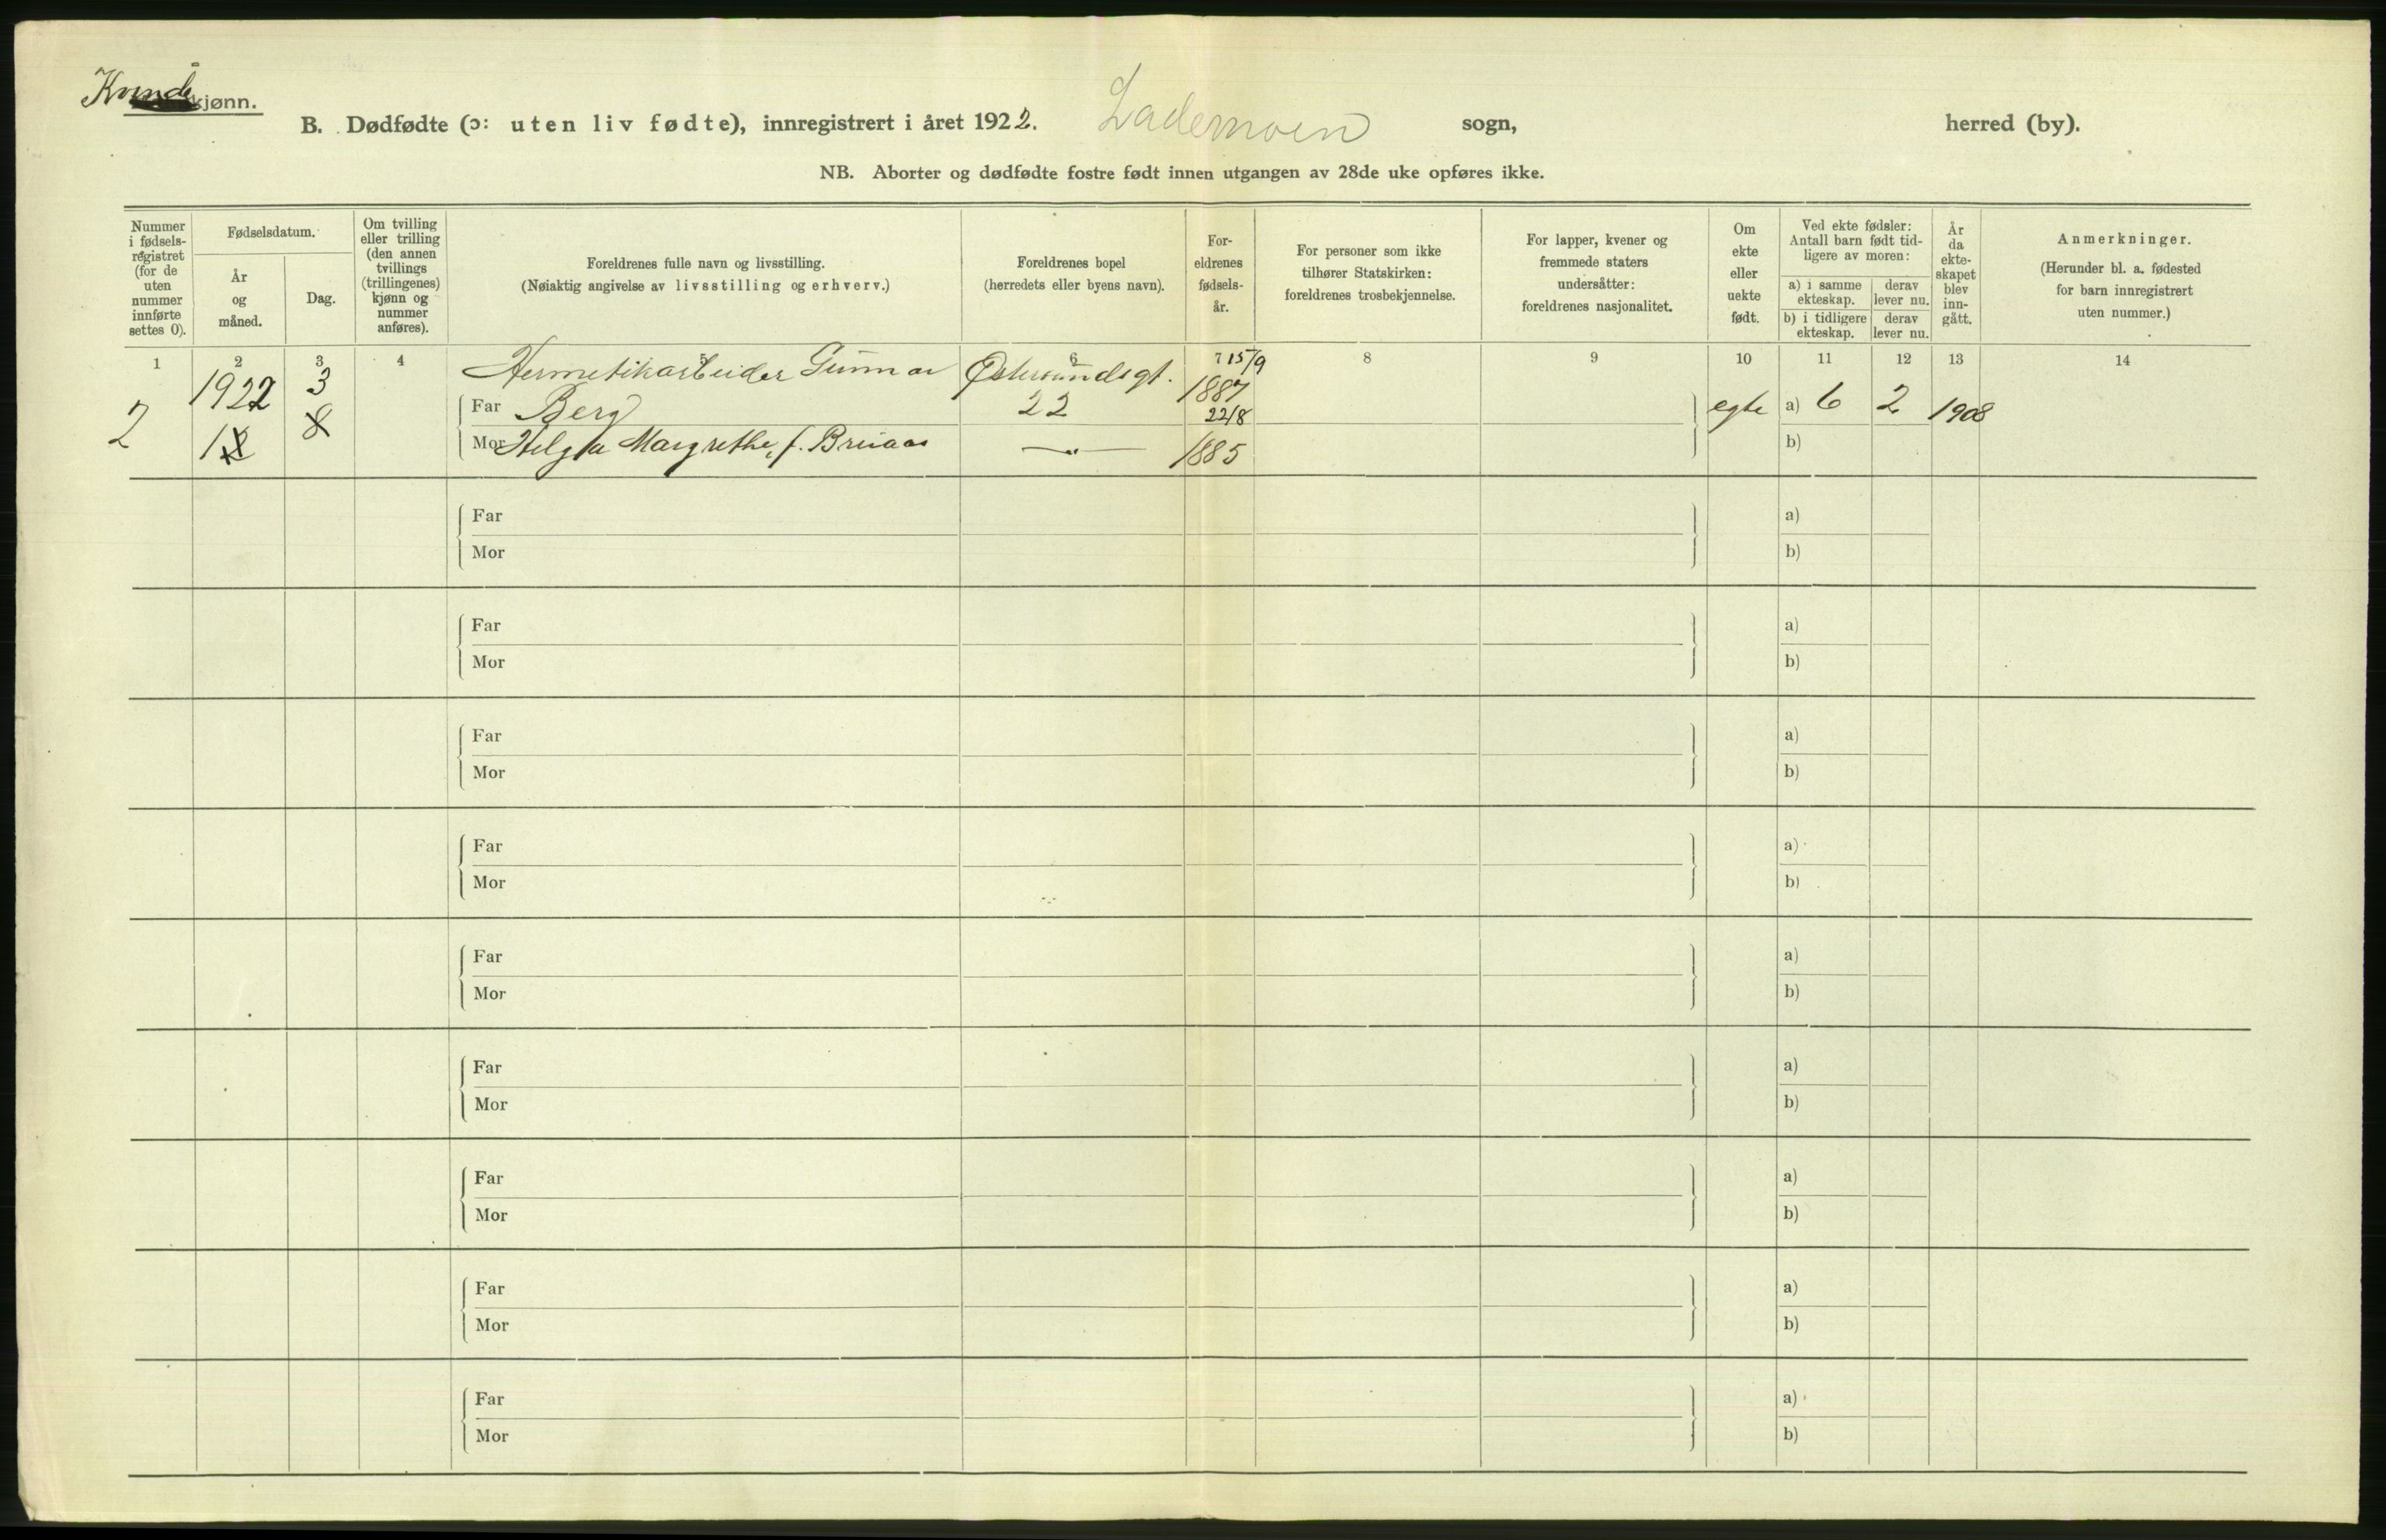 Kvinde kjønn.
B. Dødfødte (ɔ: uten liv fødte), innregistrert i året 1922. Lademoen sogn, herred (by).
NB. Aborter og dødfødte fostre født innen utgangen av 28de uke opføres ikke.
Nummer i fødsels-registret (for de uten nummer innførte settes 0).
Fødselsdatum.
År og måned.
Dag.
Om tvilling eller trilling (den annen tvillings (trillingenes) kjønn og nummer anføres).
Foreldrenes fulle navn og livsstilling.
(Nøiaktig angivelse av livsstilling og erhverv.)
Foreldrenes bopel
(herredets eller byens navn).
For-eldrenes fødsels-år.
For personer som ikke tilhører Statskirken: foreldrenes trosbekjennelse.
For lapper, kvener og fremmede staters undersåtter: foreldrenes nasjonalitet.
Om ekte eller uekte født.
Ved ekte fødsler: Antall barn født tid-ligere av moren:
a) i samme ekteskap.
derav lever nu.
b) i tidligere ekteskap.
derav lever nu.
År da ekte-skapet blev inn-gått.
Anmerkninger.
(Herunder bl. a. fødested for barn innregistrert uten nummer.)
1 2 3 4 5 6 7 8 9 10 11 12 13 14
1922 3 Hermetikarbeider Gunnar Østersundsgt. 15/9 1887
2 8 Far Berg 22 egte a) 6 2 1908
12 Mor Helga Margrethe, f. Bruaas —„— 22/8 1885 b)
Far a)
Mor b)
Far a)
Mor b)
Far a)
Mor b)
Far a)
Mor b)
Far a)
Mor b)
Far a)
Mor b)
Far a)
Mor b)
Far a)
Mor b)
Far a)
Mor b)